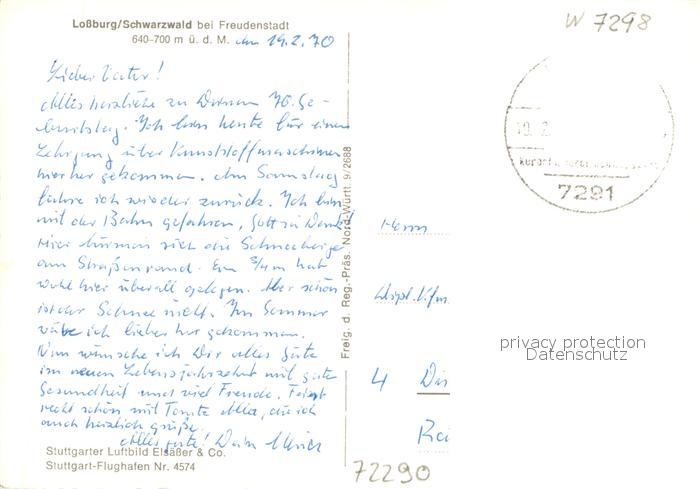 W 7298
Loßburg/Schwarzwald bei Freudenstadt
640-700 m ü. d. M. den 19.2.70
Lieber Vater!
Alles herzliche zu Deinem 70. Ge-
burtstag. Ich bin heute für einen
Lehrgang über Kunststoffmaschinen
hierher gekommen. Am Samstag
fahre ich wieder zurück. Ich bin
mit der Bahn gefahren, Gott sei Dank!
Hier türmen sich die Schneeberge
am Straßenrand. Ein 3/4 m hat
wohl hier überall gelegen. Aber schön
ist der Schnee nicht. Im Sommer
wäre ich lieber her gekommen.
Nun wünsche ich Dir alles Gute
im neuen Lebensjahrzehnt mit gute
Gesundheit und viel Freude. Feiert
recht schön mit Tante Alla, die ich
auch herzlich grüße.
Alles gute! Dein
Stuttgarter Luftbild Elsäßer & Co.
Stuttgart-Flughafen Nr. 4574
Freig. d. Reg.-Präs. Nord-Württ. 9/2668
19.2
7291
Herrn
Dipl. Kfm.
privacy protection
Datenschutz
4
72290